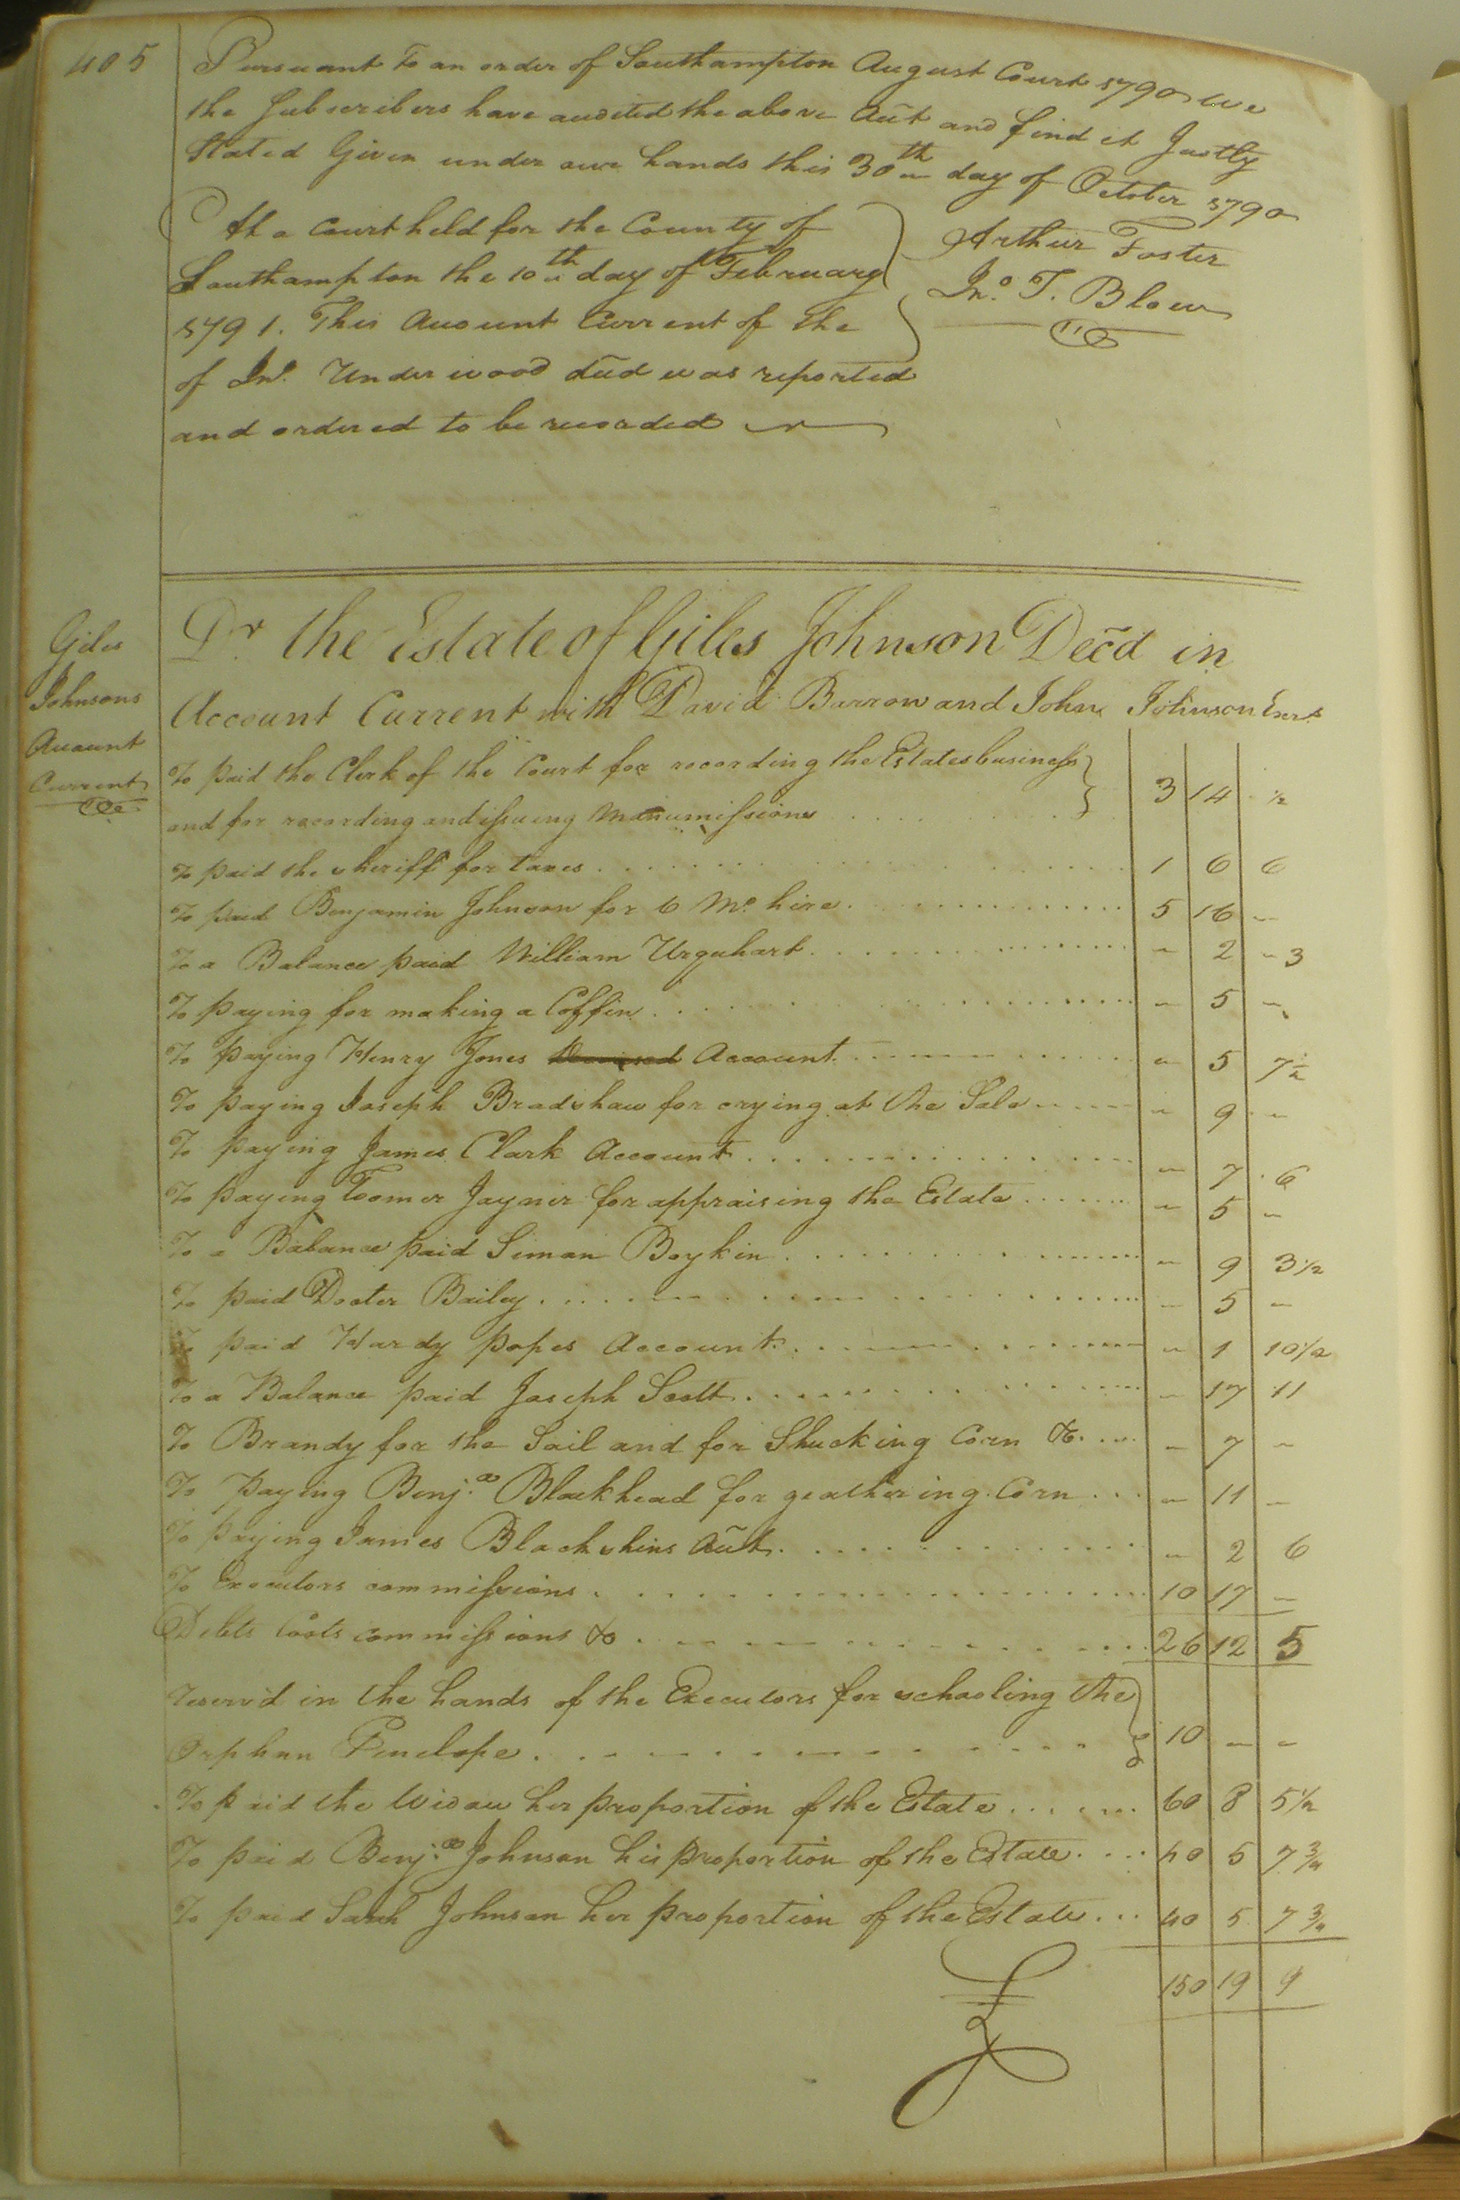 405
Pursuant to an order of Southampton August Court 1790 We
the Subscribers have audited the above Acct and find it Justly
Stated Given under our hands this 30th day of October 1790
Arthur Foster
Jno. T. Blow
At a Court held for the County of
Southampton the 10th day of February
1791. This Account Current of the
of Jno. Underwood decd was reported
and ordered to be recorded
Giles
Johnsons
Account
Current
Dr. the Estate of Giles Johnson Decd in
Account Current with David Barrow and John Johnson Exrs
To paid the Clerk of the Court for recording the Estates business
and for recording and issuing Manumissions 3 14 . ½
To paid the Sheriff for taxes 1 6 6
To paid Benjamin Johnson for 6 Mo. hire 5 16 -
To a Balance paid William Urquhart - 2 - 3
To paying for making a Coffin - 5 -
To paying Henry Jones Account - 5 7½
To paying Joseph Bradshaw for crying at the Sale - 9 -
To paying James Clark Account - 7 . 6
To paying Toomer Jayner for appraising the Estate - 5 -
To a Balance paid Siman Boykin - 9 3½
To paid Docter Bailey - 5 -
To paid Hardy popes Account - 1 10½
To a Balance paid Joseph Scott - 17 11
To Brandy for the Sail and for Shucking Corn &c. - 7 -
To paying Benja. Blackhead for geathering Corn - 11 -
To paying James Blackshins Acct. - 2 6
To Executors commissions 10 17 -
Debts Costs commissions &c 26 12 5
reserv'd in the hands of the Executors for schooling the
Orphan Penelope 10 - -
To paid the Widow her proportion of the Estate 60 8 5½
To paid Benja. Johnson his proportion of the Estate 40 5 7¾
To paid Sarah Johnson her proportion of the Estate 40 5 7¾
£ 150 19 9